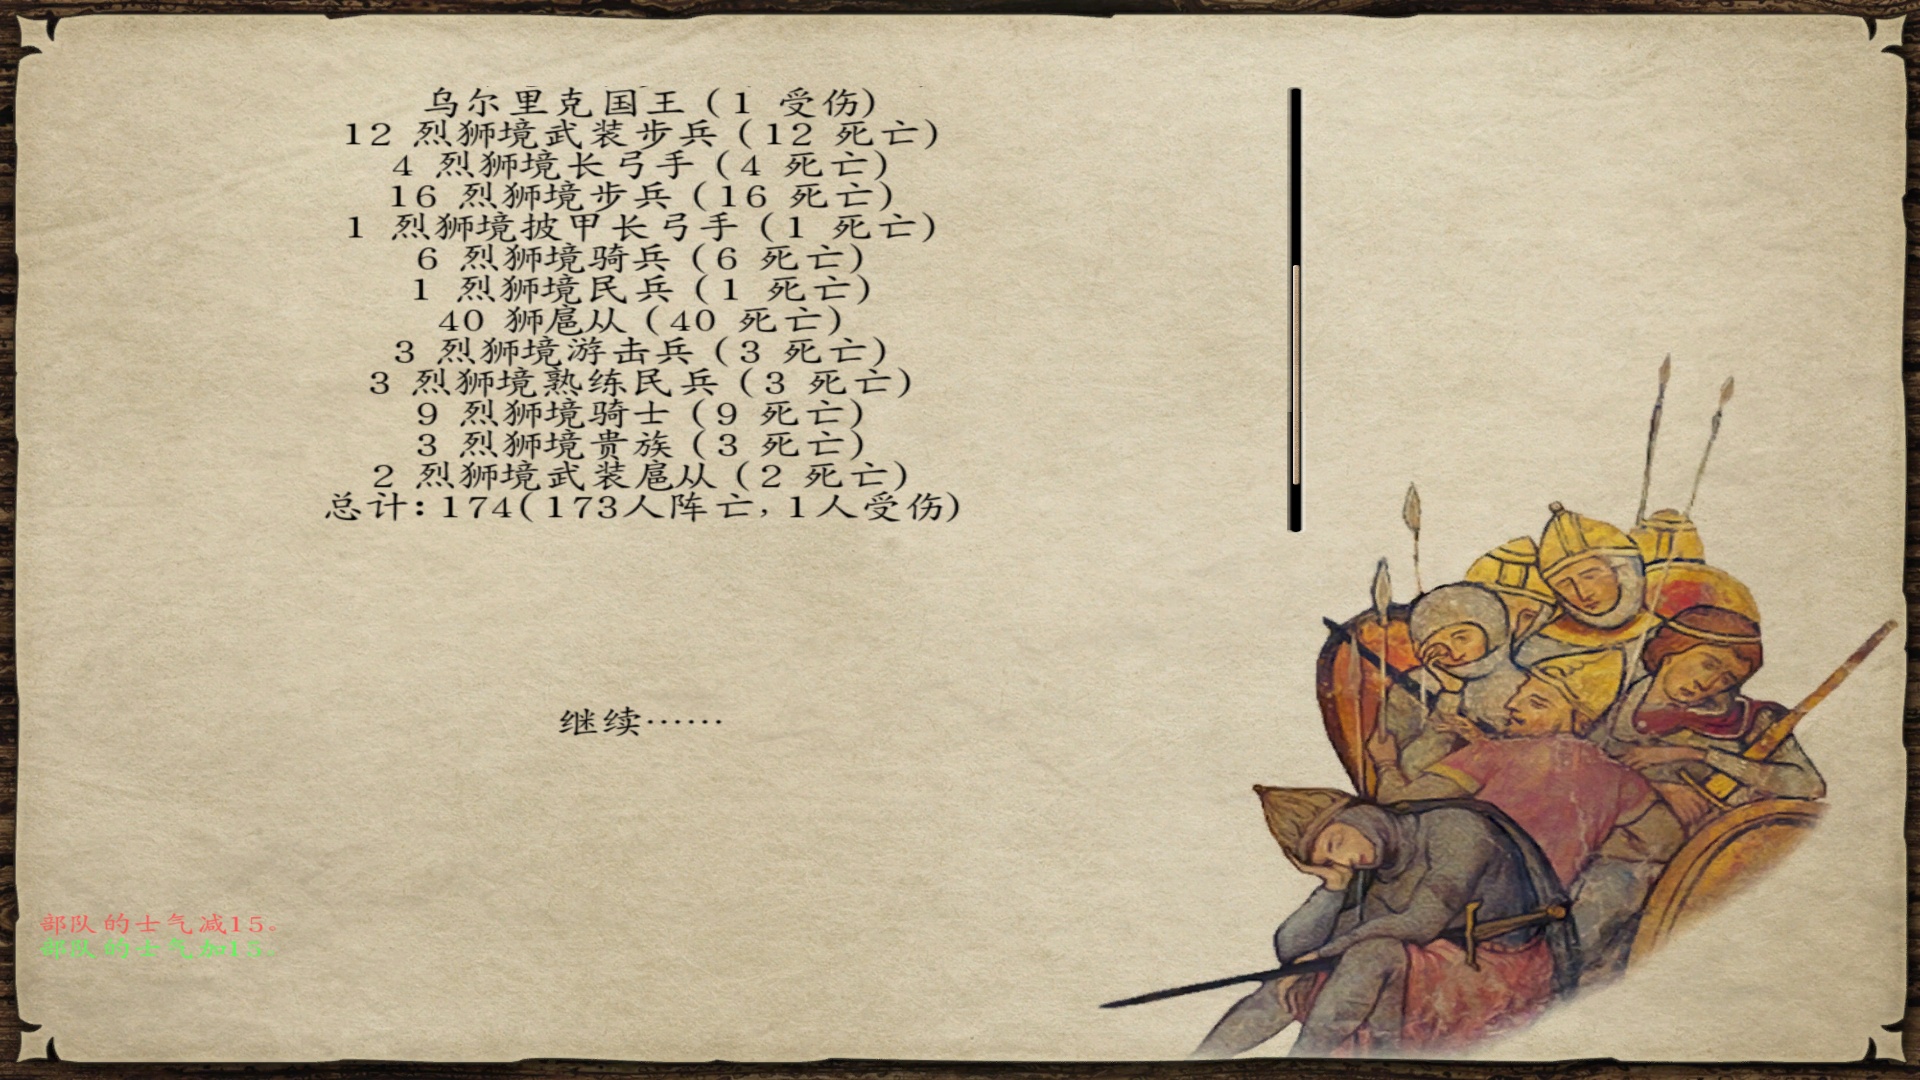 乌尔里克国王(1 受伤)
12 烈狮境武装步兵(12 死亡)
4 烈狮境长弓手(4 死亡)
16 烈狮境步兵(16 死亡)
1 烈狮境披甲长弓手(1 死亡)
6 烈狮境骑兵(6 死亡)
1 烈狮境民兵(1 死亡)
40 狮扈从(40 死亡)
3 烈狮境游击兵(3 死亡)
3 烈狮境熟练民兵(3 死亡)
9 烈狮境骑士(9 死亡)
3 烈狮境贵族(3 死亡)
2 烈狮境武装扈从(2 死亡)
总计:174(173人阵亡,1人受伤)
继续……
部队的士气减15。
部队的士气加15。